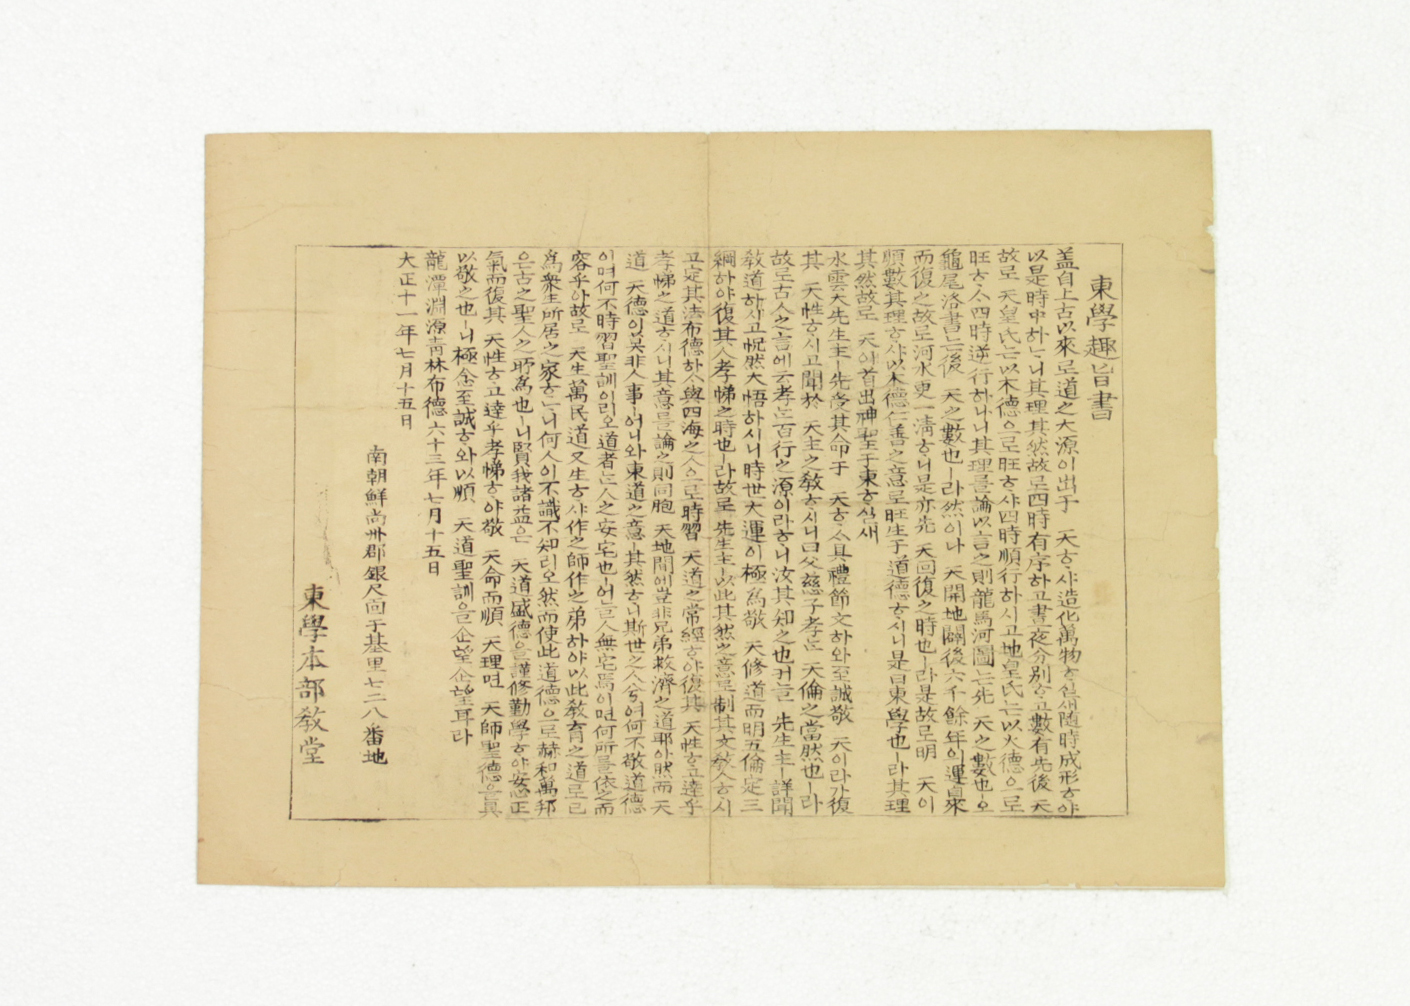 東學趣旨書
盖自上古以來로道之大源이出于 天ᄒᆞ샤造化萬物ᄒᆞ실새隨時成形ᄒᆞ야
以是時中하ᄂᆞ니其理其然故로四時有序하고晝夜分別ᄒᆞ고數有先後 天
故로 天皇氏ᄂᆞᆫ以木德으로旺ᄒᆞ샤四時順行하시고地皇氏ᄂᆞᆫ以火德으로
旺ᄒᆞ사四時逆行하나니其理를論以言之則龍馬河圖ᄂᆞᆫ先 天之數也ㅣ오
龜尾洛書ᄂᆞᆫ後 天之數也ㅣ라然이나 天開地闢後六千餘年의運自來
而復之故로河水更一淸ᄒᆞ니是亦先 天回復之時也ㅣ라是故로明 天이
順數其理ᄒᆞ샤以木德仁善之意로旺生于道德ᄒᆞ시니是曰東學也ㅣ라其理
其然故로 天이首出神聖于東ᄒᆞ실새
水雲大先生主ㅣ先受其命于 天ᄒᆞ사具禮節文하와至誠敬 天이라가復
其 天性ᄒᆞ시고聞於 天主之敎ᄒᆞ시니曰父慈子孝ᄂᆞᆫ 天倫之當然也ㅣ라
故로古人之言에云孝ᄂᆞᆫ百行之源이라ᄒᆞ니汝其知之也커든 先生主ㅣ詳聞
敎道하시고怳然大悟하시니時世大運이極爲敬 天修道而明五倫定三
綱하야復其人孝悌之時也ㅣ라故로 先生主ㅣ以此其然之意로制其文敎人ᄒᆞ시
고定其法布德하사與四海之人으로時習 天道之常經ᄒᆞ야復其 天性ᄒᆞ고達乎
孝悌之道ᄒᆞ시니其意를論之則同胞 天地間에豈非兄弟救濟之道耶아然而 天
道 天德이莫非人事ㅣ어니와東道之意ㅣ其然ᄒᆞ니斯世之人兮여何不敬道德
이며何不時習聖訓이리오道者ᄂᆞᆫ人之安宅也ㅣ어ᄂᆞᆯ人無宅焉이면何所를依之而
容乎아故로 天生萬民道又生ᄒᆞ샤作之師作之弟하야以此敎育之道로已
爲衆生所居之家ᄒᆞᄂᆞ니何人이不識不知리오然而使此道德으로赫和萬邦
은古之聖人之所爲也ㅣ니賢我諸益은 天道盛德을謹修勤學ᄒᆞ야安心正
氣而復其 天性ᄒᆞ고達乎孝悌ᄒᆞ야敬 天命而順 天理면 天師聖德을眞
以敬之也ㅣ니極念至誠ᄒᆞ와以順 天道聖訓을企望企望耳라
龍潭淵源靑林布德六十三年七月十五日
大正十一年七月十五日
南朝鮮尙州郡銀尺面于基里七二八番地
東學本部敎堂